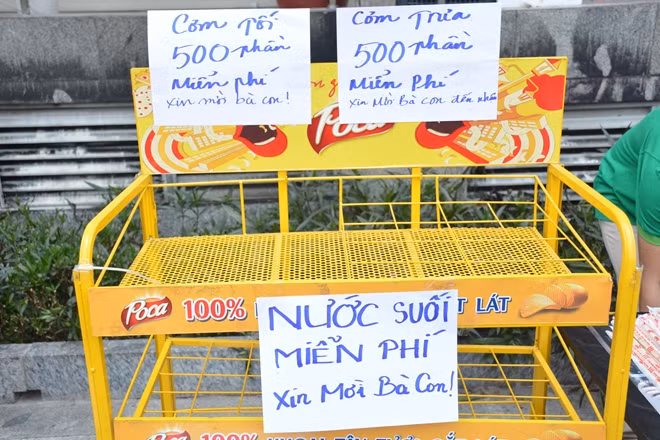 Cơm Tối
500 Phần
Miển phí
xin mời bà con!
Cơm Trưa
500 Phần
Miển Phí
Xin Mời Bà con đến nhận
Poca
Poca 100%
T LÁT
NƯỚC SUỐI
MIỂN PHÍ
Xin Mời Bà Con!
Poca 100%